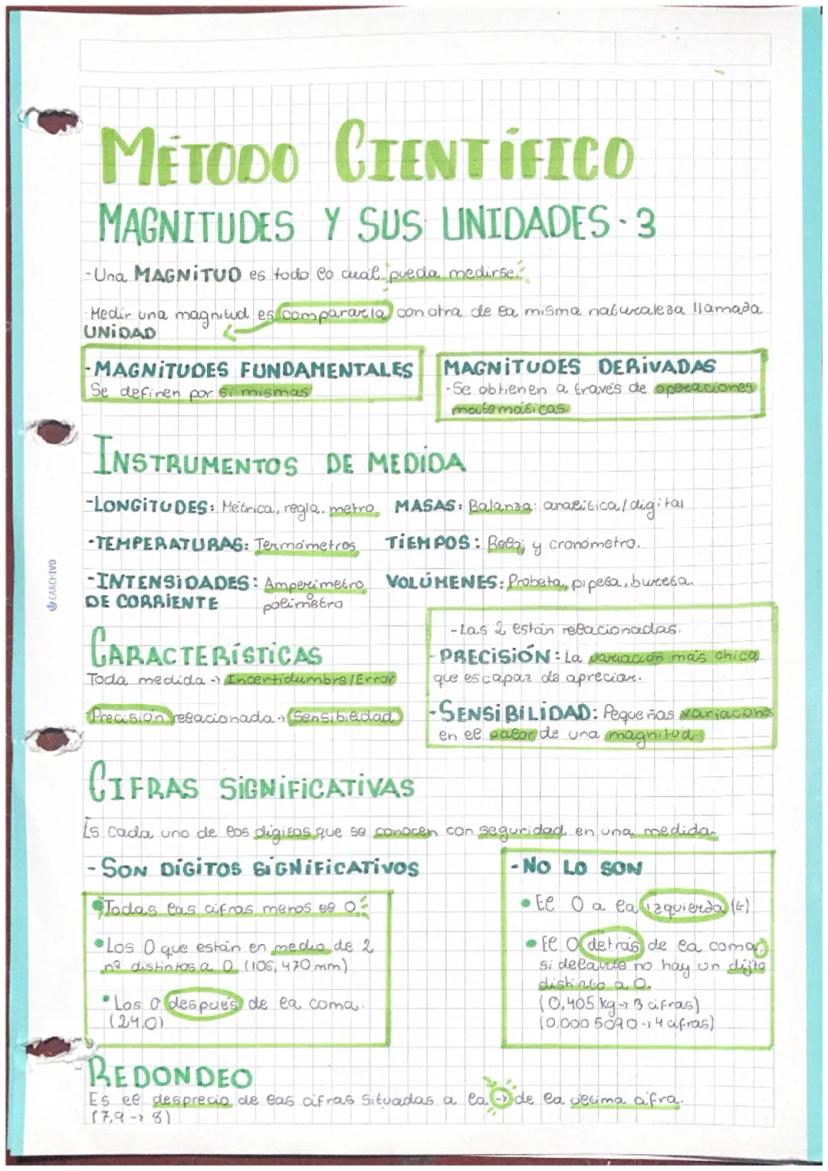 MÉTODO CIENTÍFICO
MAGNITUDES Y SUS UNIDADES · 3
-Una MAGNITUD es todo lo cual pueda medirse.
·Medir una magnitud es compararla con otra de la misma naturaleza llamada
UNIDAD
-MAGNITUDES FUNDAMENTALES
Se definen por si mismas
MAGNITUDES DERIVADAS
-Se obtienen a través de operaciones
matemáticas
INSTRUMENTOS DE MEDIDA
-LONGITUDES: Métrica, regla, metro
MASAS: Balanza: analítica/digital
-TEMPERATURAS: Termómetros
TIEMPOS: Reloj y cronómetro.
-INTENSIDADES: Amperímetro
VOLÚMENES: Probeta, pipeta, bureta.
DE CORRIENTE
o
polímetro
CARCHIVO
CARACTERÍSTICAS
Toda medida -> Incertidumbre/Error
Precisión relacionada -> Sensibilidad
-Las 2 están relacionadas.
-PRECISIÓN: La variación más chica
que es capaz de apreciar.
-SENSIBILIDAD: Pequeñas variaciones
en el valor de una magnitud.
CIFRAS SIGNIFICATIVAS
Es cada uno de los dígitos que se conocen con seguridad en una medida.
-SON DÍGITOS SIGNIFICATIVOS
•Todas las cifras menos el 0
•Los 0 que están en medio de 2
nº distintos a 0 (106,470 mm)
•Los 0 después de la coma.
(24.0)
-NO LO SON
•El 0 a la izquierda (←)
•El 0 detrás de la coma,
si delante no hay un dijito
distinto a 0.
(0,405 kg -> 3 cifras)
(0.000 5090 -> 4 cifras)
REDONDEO
Es el desprecio de las cifras situadas a la -> de la última cifra.
(7,9 -> 8)